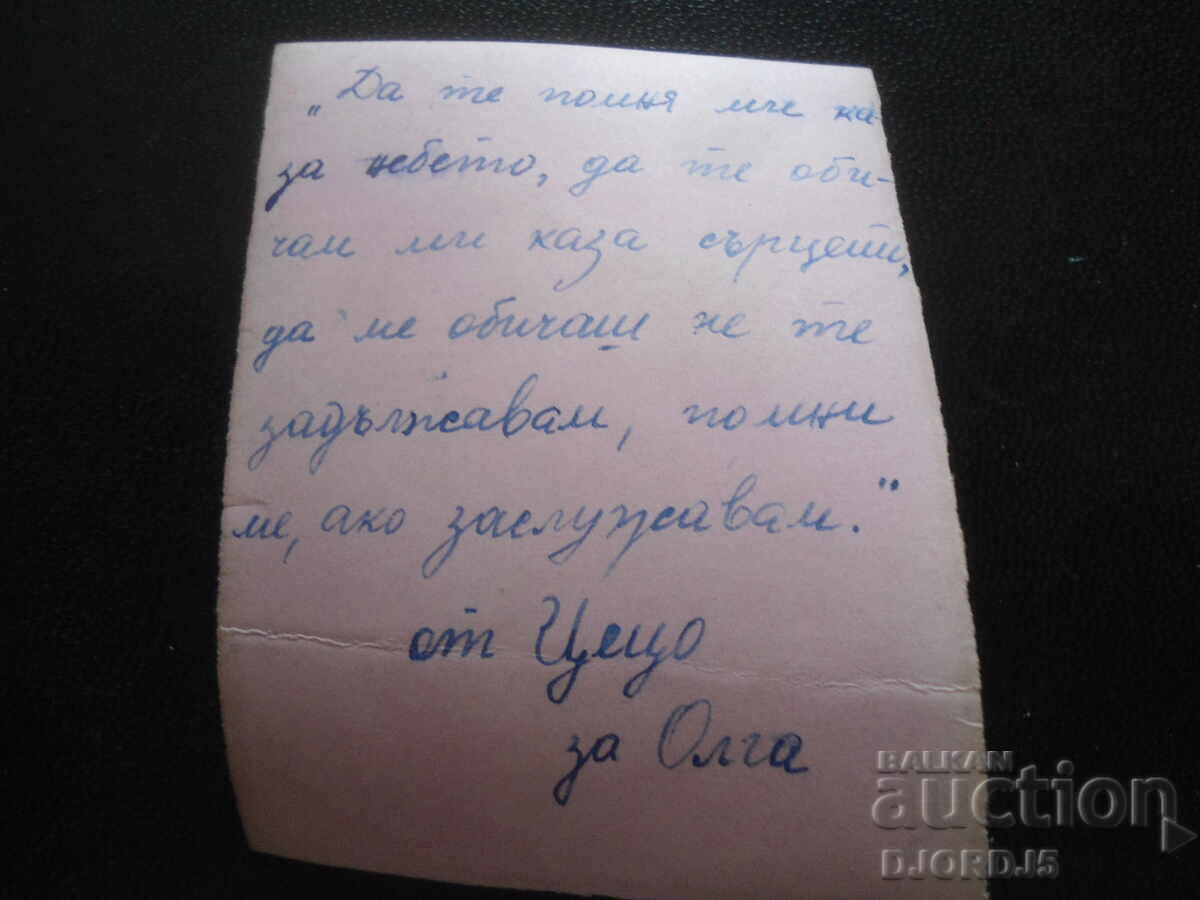 „Да те помня ми ка-
за небето, да те оби-
чам ми каза сърцето,
да ме обичаш не те
задължавам, помни
ме, ако заслужавам."
от Цецо
за Олга
BALKAN
auction
DJORDJ5